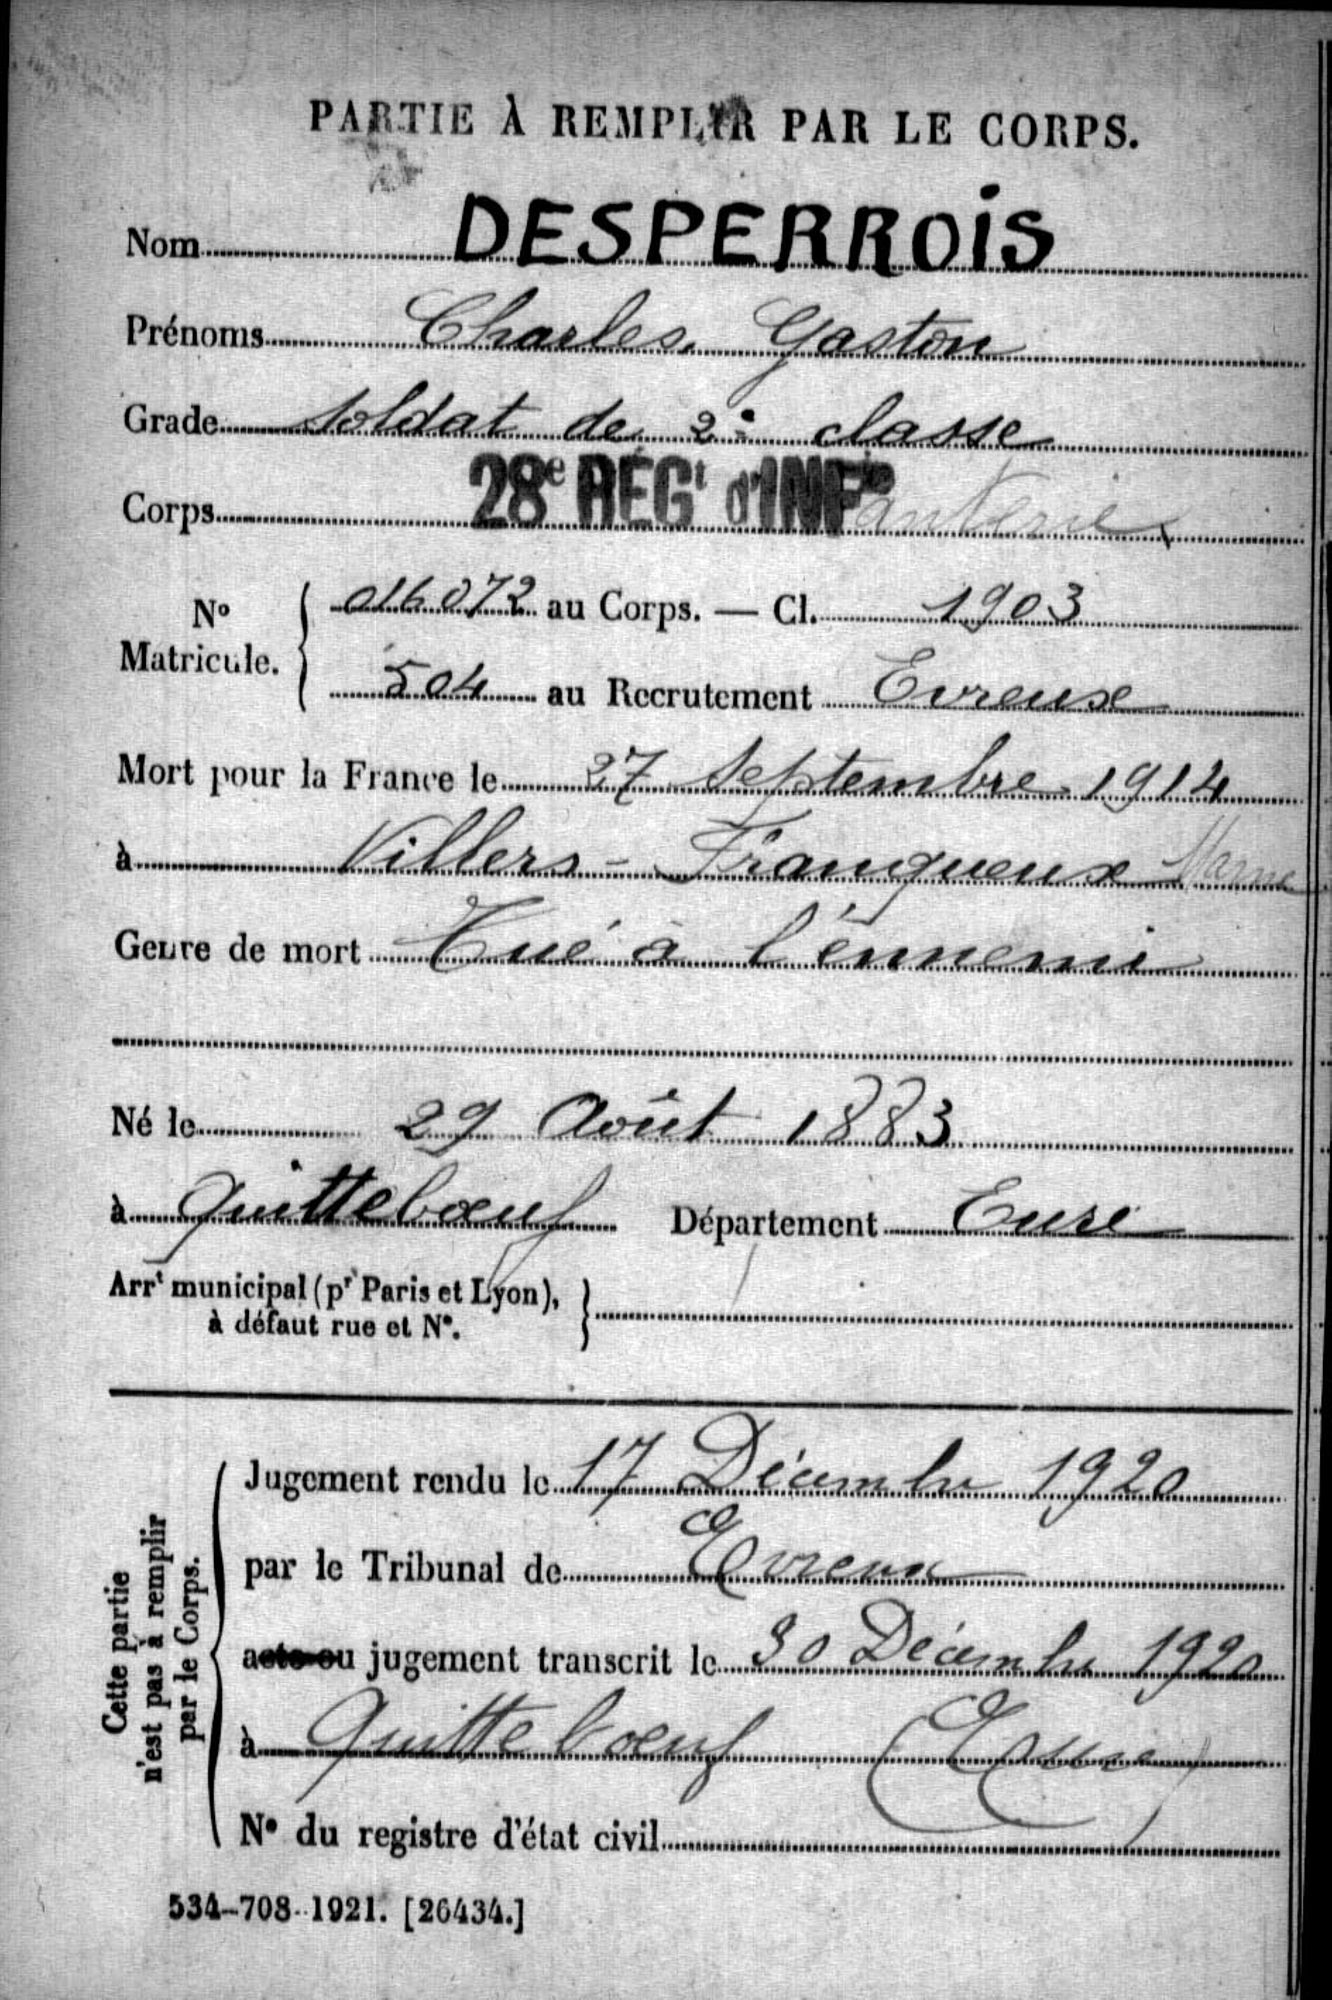 PARTIE À REMPLIR PAR LE CORPS.
Nom DESPERROIS
Prénoms Charles, Gaston
Grade Soldat de 2e classe
Corps 28e RÉGt d'INFie anterie
No Matricule. 016072 au Corps. — Cl. 1903
504 au Recrutement Evreux
Mort pour la France le 27 Septembre 1914
à Villers-Franqueux Marne
Genre de mort Tué à l'ennemi
Né le 29 Août 1883
à Quittebœuf Département Eure
Arrt municipal (pr Paris et Lyon),
à défaut rue et No.
Cette partie
n'est pas à remplir
par le Corps.
Jugement rendu le 17 Décembre 1920
par le Tribunal de Evreux
acte ou jugement transcrit le 30 Décembre 1920
à Quittebœuf (Eure)
No du registre d'état civil
534-708-1921. [26434.]